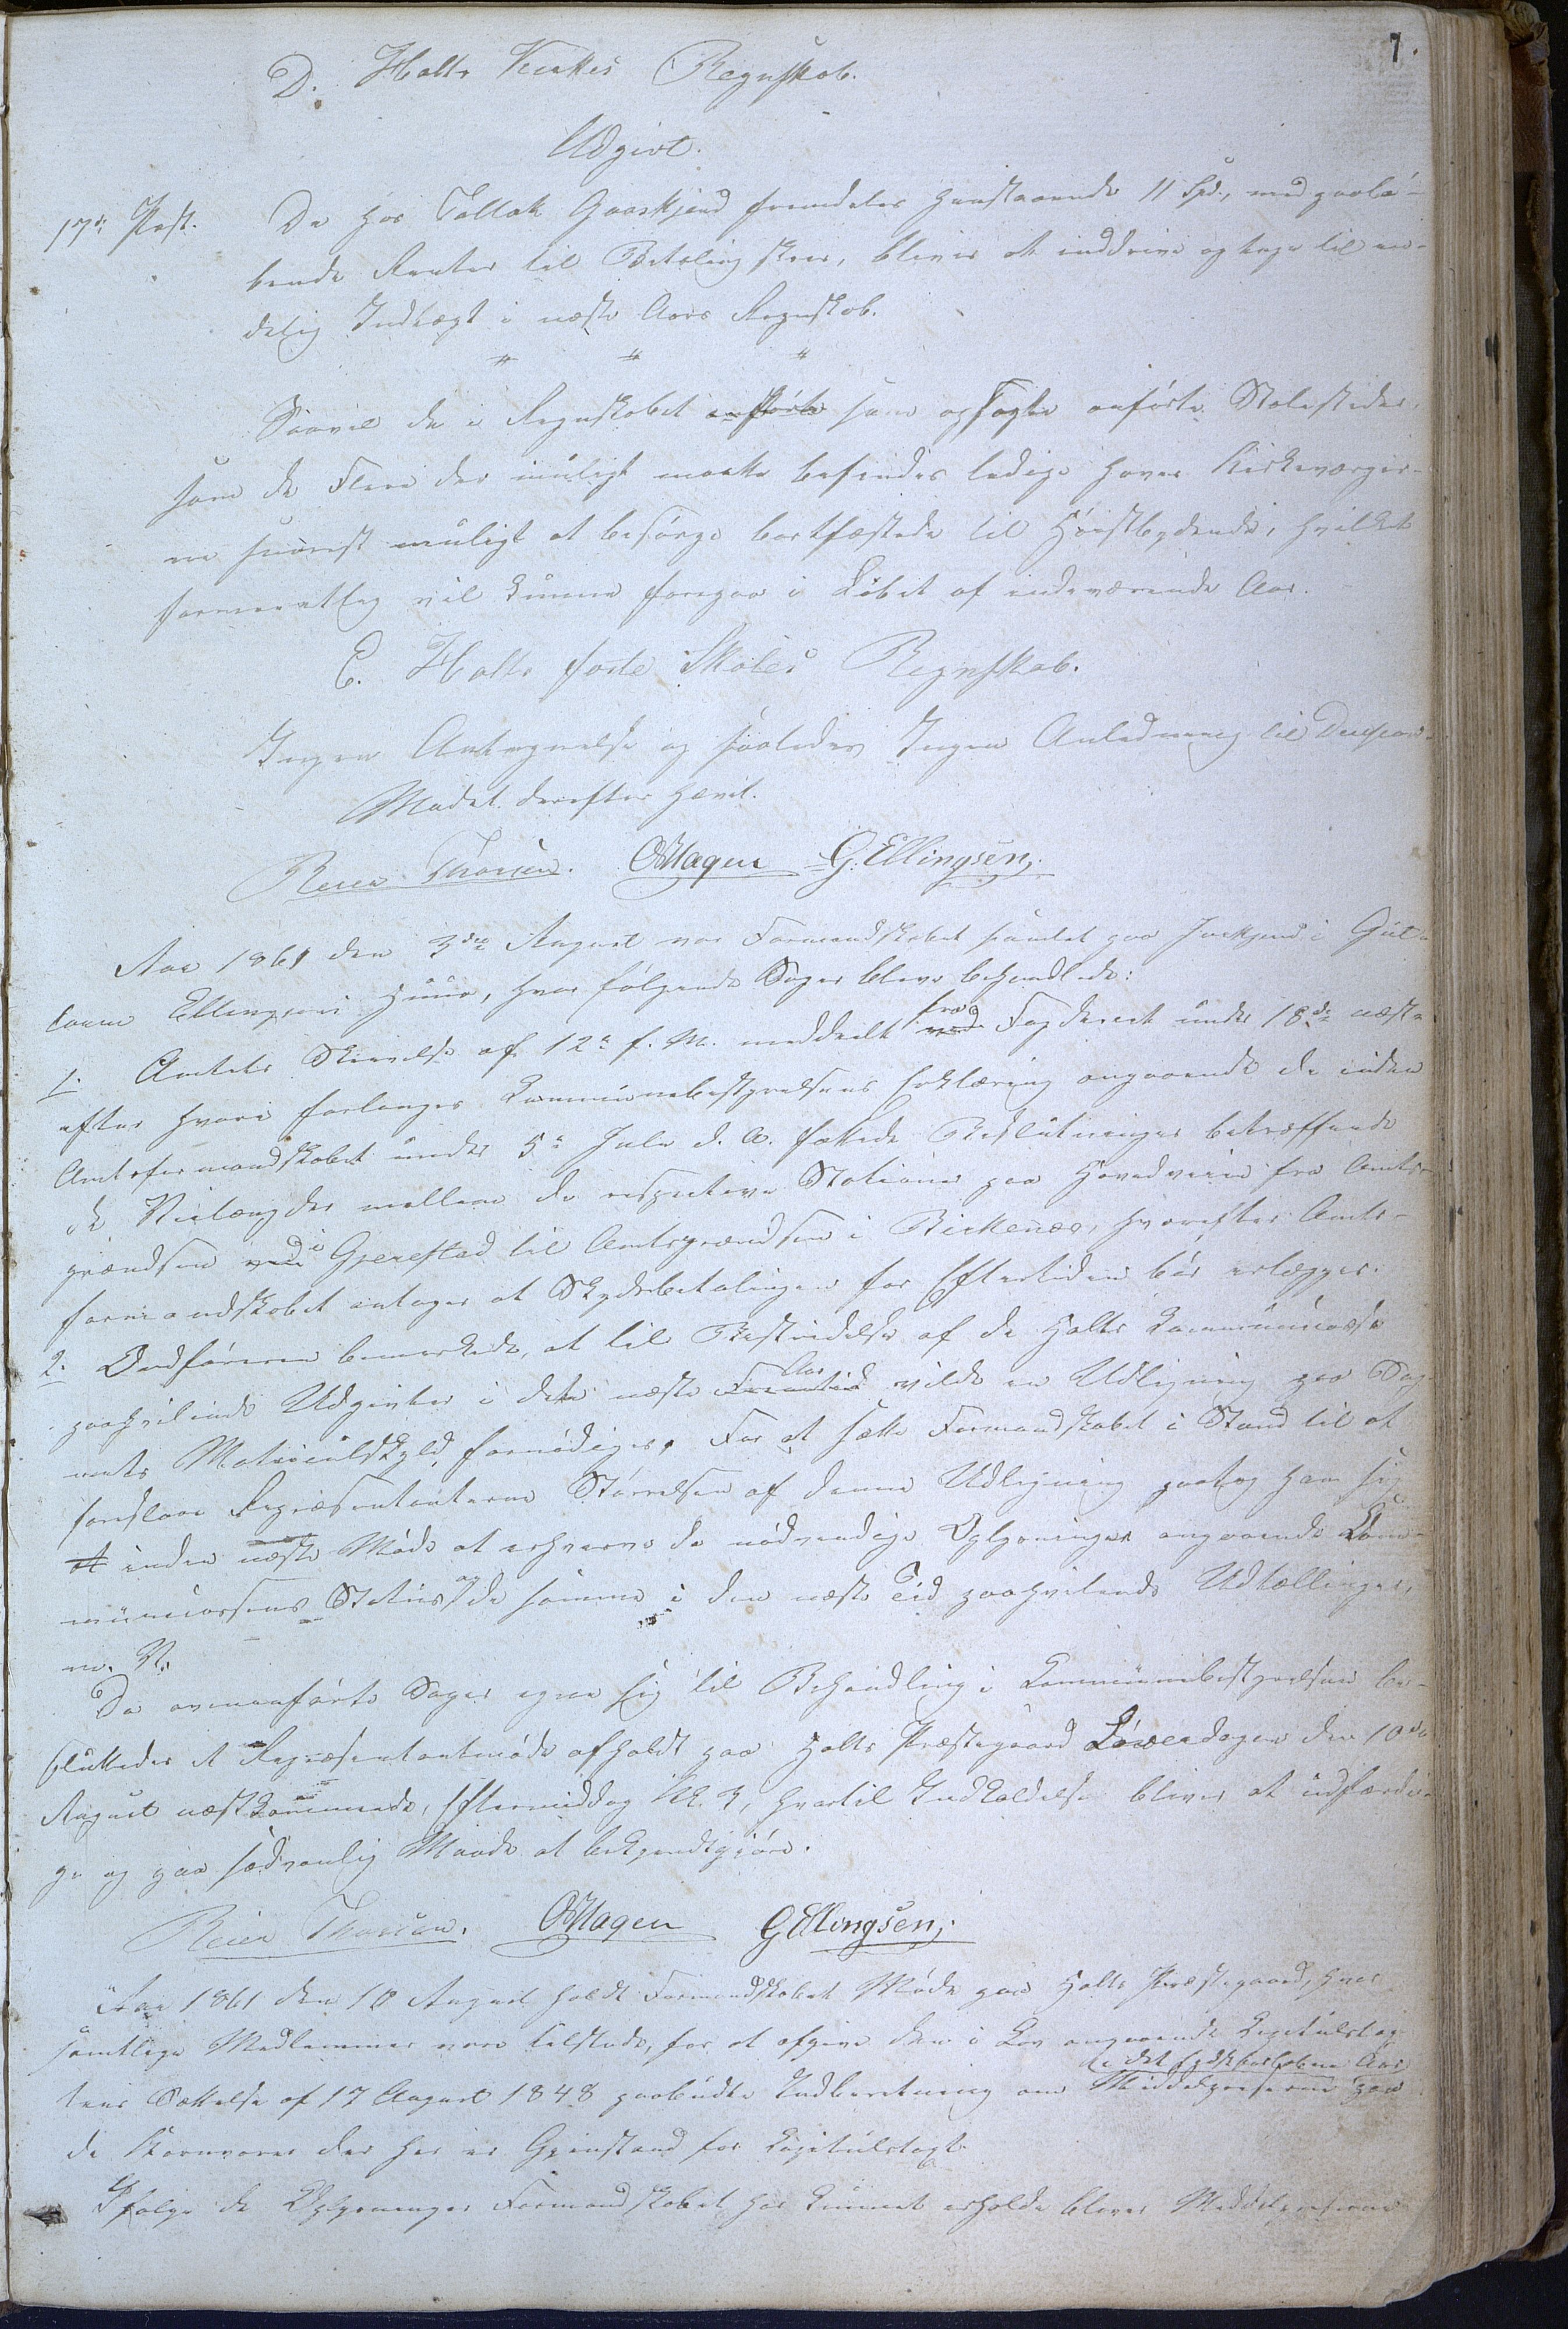 7.
D. Holts Kirkes Regnskab.
Udgivt.
17de Post. De hos Tallak Gaaskjend fremdeles henstaaende 11 Spd., med paalø-
bende Renter til Betaling skeer, bliver at inddrive og tage til en-
delig Indtægt i næste Aars Regnskab.
" " "
Saavel de i Regnskabet anførte som anførte Stolesteder,
som de Flere der muligt maatte befindes ledige haver Kirkeværger-
ne snarest muligt at besørge bortfæstede til Høistbydende, hvilket
formeentlig vil kunne foregaa i Løbet af indeværende Aar.
E. Holts faste Skoles Regnskab.
Ingen Antegnelse og saaledes Ingen Anledning til
Mødet derefter hævet.
Reier Thorsen. OHagen G. Ellingsen.
Aar 1861 den 3die August var Formandskabet samlet paa i Gut-
torm Ellingsens Huus, hvor følgende Sager bleve behandlede:
1. Amtets Skrivelse af 12te f. M. meddeelt ved fra Fogderiet under 18de næst-
efter hvori forlanges Kommunebestyrelsens Erklæring angaaende de inden
Amtsformandskabet under 5te Juli d. A. fattede Beslutninger betræffende
de Veilængder mellem de respective Stationer paa Hovedveien fra Amts-
grændsen ved i Gjerestad til Amtsgrændsen i Birkenæs, hvorefter Amts-
formandskabet antager at Skydsbetalingen for Eftertiden bør erlægges.
2. Ordføreren bemærkede, at til Bestridelse af de Holts Kommunecasse
paahvilende Udgivter i det næste Fremtid Aar vilde en Udligning paa Sog-
nets Matriculskyld fornødiges. For at sætte Formandskabet i Stand til at
foreslaae Repræsentanterne Størrelsen af denne Udligning paatog han sig
at inden næste Møde at erhverve de nødvendige Oplysninger angaaende Kom-
munecassens Status og de samme i den næste Tid paahvilende Udtællinger,
m. V.
Da ovenanførte Sager egne sig til Behandling i Kommunebestyrelsen be-
sluttedes et Repræsentantmøde afholdt paa Holts Præstegaard Løverdagen den 10de
August næstkommende, Eftermiddag Kl. 3, hvortil Indkaldelse bliver at udfærdi-
ge og paa sædvanlig Maade at bekjendtgjøre.
Reier Thorsen. OHagen GEllingsen.
Aar 1861 den 10 August holdt Formandskabet Møde paa Holts Præstegaard, hvor
samtlige Medlemmer vare tilstede, for at afgive den i Lov angaaende Kapitulstax-
tens Sættelse af 17 August 1848 paabudte Indberetning om Middelpriserne i det sidstforløbne Aar paa
de Kornvarer der her er Gjenstand for Kapitulstaxt.
Ifølge de Oplysninger Formandskabet har kunnet erholde bliver Middelpriserne